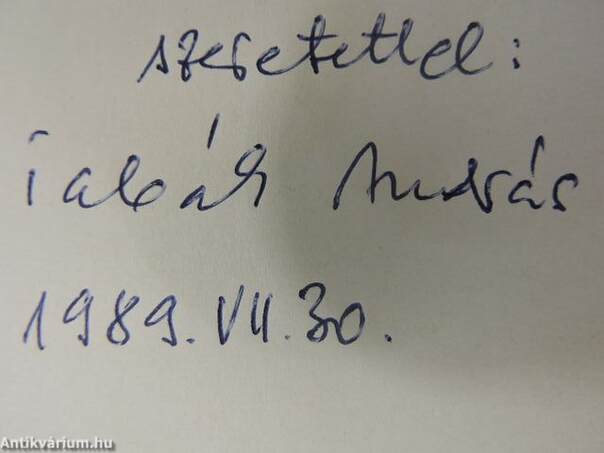 szeretettel:
András
1989. VII. 30.
Antikvárium.hu